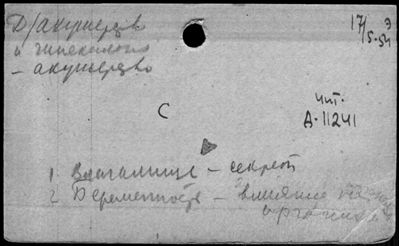 Д/акушерство
и гинекология
– акушерство
17/э
5-54
C
Чит.
А-11241
1 Влагалище – секрет
2 Беременность – влияние на
организм